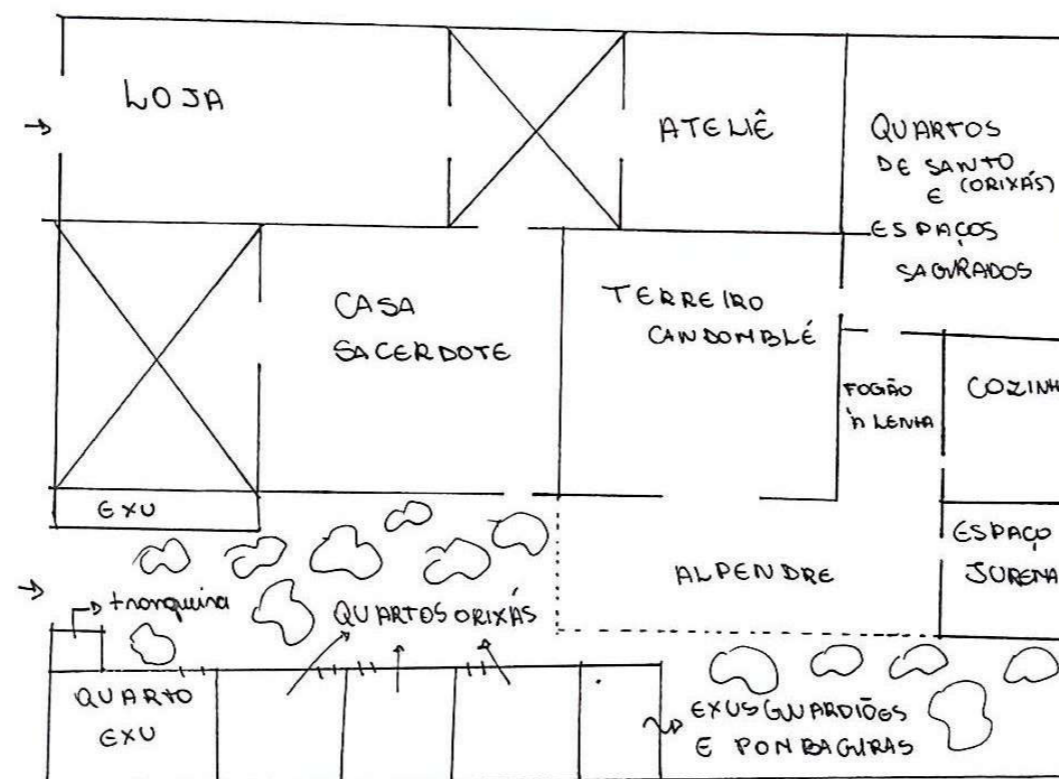 LOJA
ATELIÊ
QUARTOS
DE SANTO
E (ORIXÁS)
ESPAÇOS
SAGRADOS
CASA
SACERDOTE
TERREIRO
CANDOMBLÉ
FOGÃO
À LENHA
COZINH
EXU
ESPAÇO
JUREMA
ALPENDRE
tronqueira
QUARTOS ORIXÁS
QUARTO
EXU
EXUS GUARDIÕES
E POMBAGIRAS